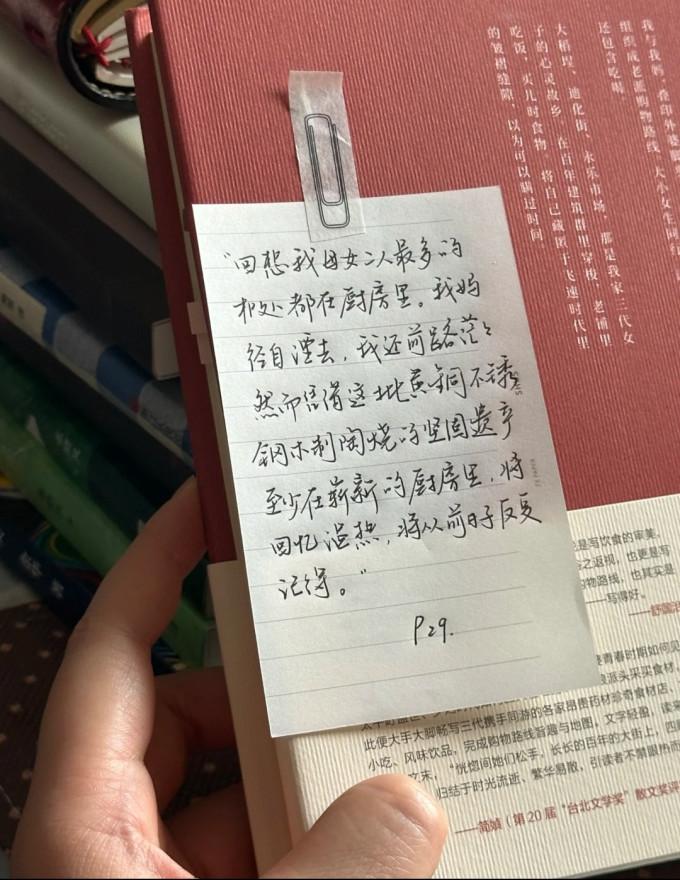 我与我妈，叠印外婆
组织成老派购物路线。大小女生同行，
还包含吃喝。
大稻埕、迪化街、永乐市场，那是我家三代女
子的心灵故乡。在百年建筑群里穿梭，老铺里
吃饭，买儿时食物。将自己藏匿于飞速时代里
的皱褶缝隙，以为可以瞒过时间
“回想我母女二人最多的
相处都在厨房里。我妈
径自湮去，我还前路茫々
然而得这批黄铜不锈
钢木制陶烧的坚固遗产
至少在崭新的厨房里，将
回忆温热，将从前日子反复
记得。”
P29.
是写饮食的审美，
之返视，也更是写
物路线，也其实是
——写得好。
——舒国治
青春时期如何见
派头采买食材，
此便大手大脚畅写三代携手同游的各家昂贵药材珍奇食材店、
小吃、风味饮品，完成购物路线旨趣与地图，文字轻盈，读来
文末，“恍惚间她们松手，长长的百年的大街上，四
归结于时光流逝、繁华易散，引读者不禁眼热而
——简媜（第20届“台北文学奖”散文奖评